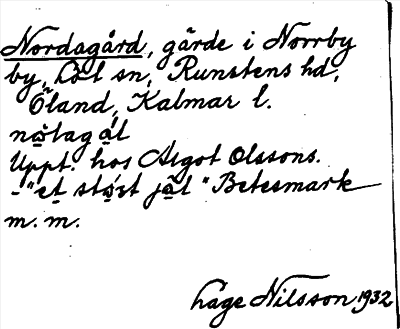 Nordagård, gärde i Norrby
by, Löt sn, Runstens hd,
Öland, Kalmar l.
Uppt. hos Algot Olssons.
Betesmark
m. m.
Hage Nilsson 1932